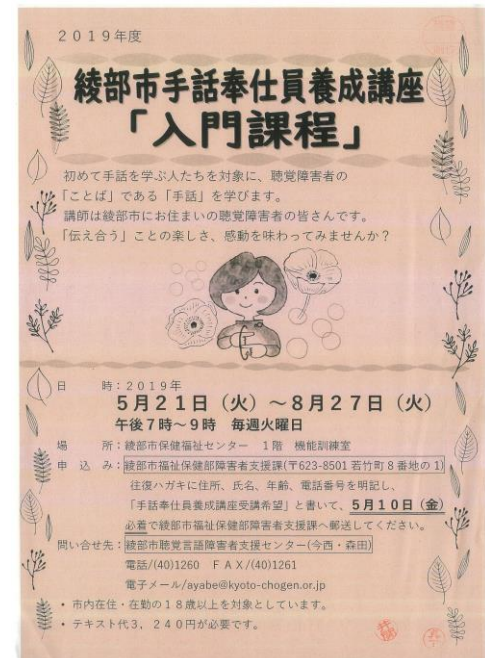 2019年度
綾部市手話奉仕員養成講座
「入門課程」
初めて手話を学ぶ人たちを対象に、聴覚障害者の
「ことば」である「手話」を学びます。
講師は綾部市にお住まいの聴覚障害者の皆さんです。
「伝え合う」ことの楽しさ、感動を味わってみませんか？
日　　時：2019年
5月21日（火）～8月27日（火）
午後7時～9時　毎週火曜日
場　　所：綾部市保健福祉センター　1階　機能訓練室
申　込　み：綾部市福祉保健部障害者支援課(〒623-8501 若竹町8番地の1)
往復ハガキに住所、氏名、年齢、電話番号を明記し、
「手話奉仕員養成講座受講希望」と書いて、5月10日（金）
必着で綾部市福祉保健部障害者支援課へ郵送してください。
問い合せ先：綾部市聴覚言語障害者支援センター(今西・森田)
電話/(40)1260　ＦＡＸ/(40)1261
電子メール/ayabe@kyoto-chogen.or.jp
・市内在住・在勤の18歳以上を対象としています。
・テキスト代3，240円が必要です。